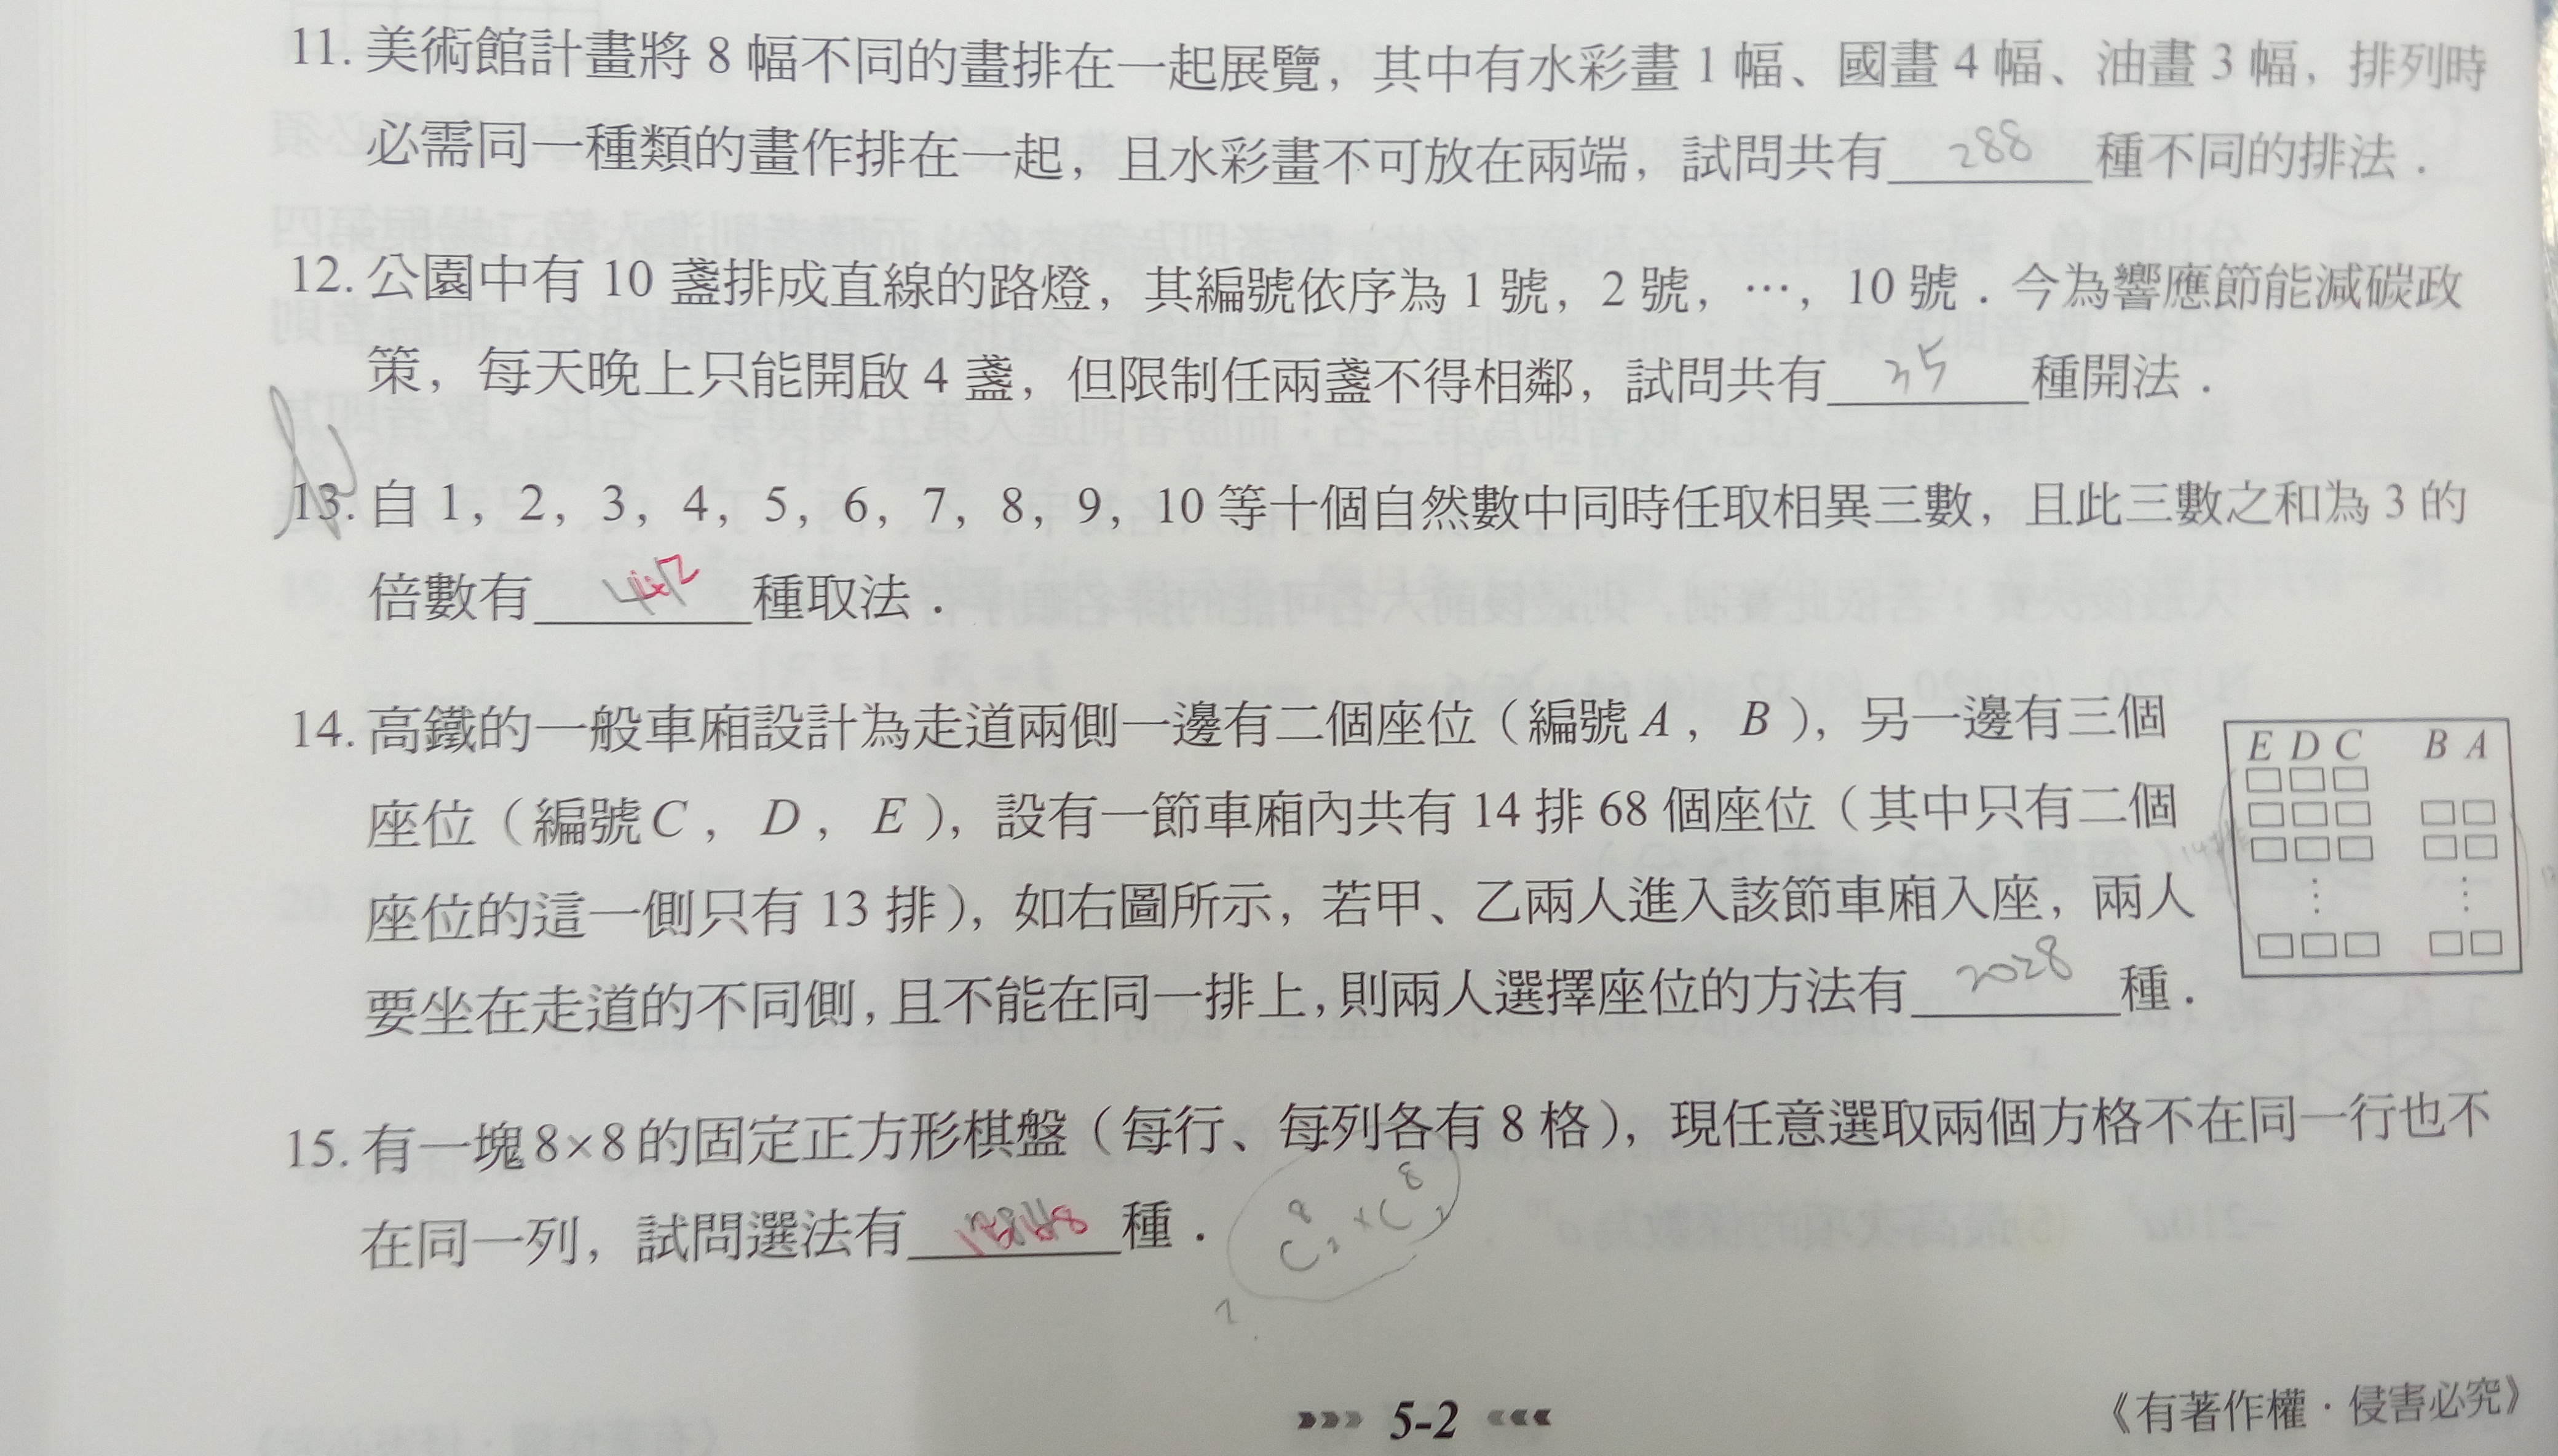 11. 美術館計畫將 8 幅不同的畫排在一起展覽，其中有水彩畫 1 幅、國畫 4 幅、油畫 3 幅，排列時
必需同一種類的畫作排在一起，且水彩畫不可放在兩端，試問共有 288 種不同的排法．
12. 公園中有 10 盞排成直線的路燈，其編號依序為 1 號，2 號，⋯，10 號．今為響應節能減碳政
策，每天晚上只能開啟 4 盞，但限制任兩盞不得相鄰，試問共有 35 種開法．
13. 自 1，2，3，4，5，6，7，8，9，10 等十個自然數中同時任取相異三數，且此三數之和為 3 的
倍數有 種取法．
14. 高鐵的一般車廂設計為走道兩側一邊有二個座位（編號 A，B），另一邊有三個
座位（編號 C，D，E），設有一節車廂內共有 14 排 68 個座位（其中只有二個
座位的這一側只有 13 排），如右圖所示，若甲、乙兩人進入該節車廂入座，兩人
要坐在走道的不同側，且不能在同一排上，則兩人選擇座位的方法有 2028 種．
E D C B A
15. 有一塊 8×8 的固定正方形棋盤（每行、每列各有 8 格），現任意選取兩個方格不在同一行也不
在同一列，試問選法有 種．
5-2
《有著作權．侵害必究》